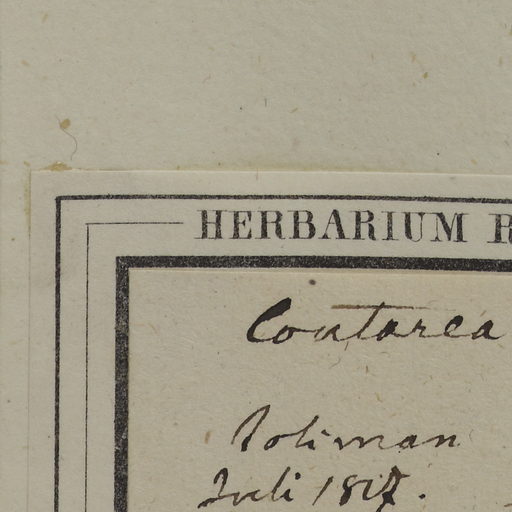 HERBARIUM R
Coutarea
Toliman
Juli